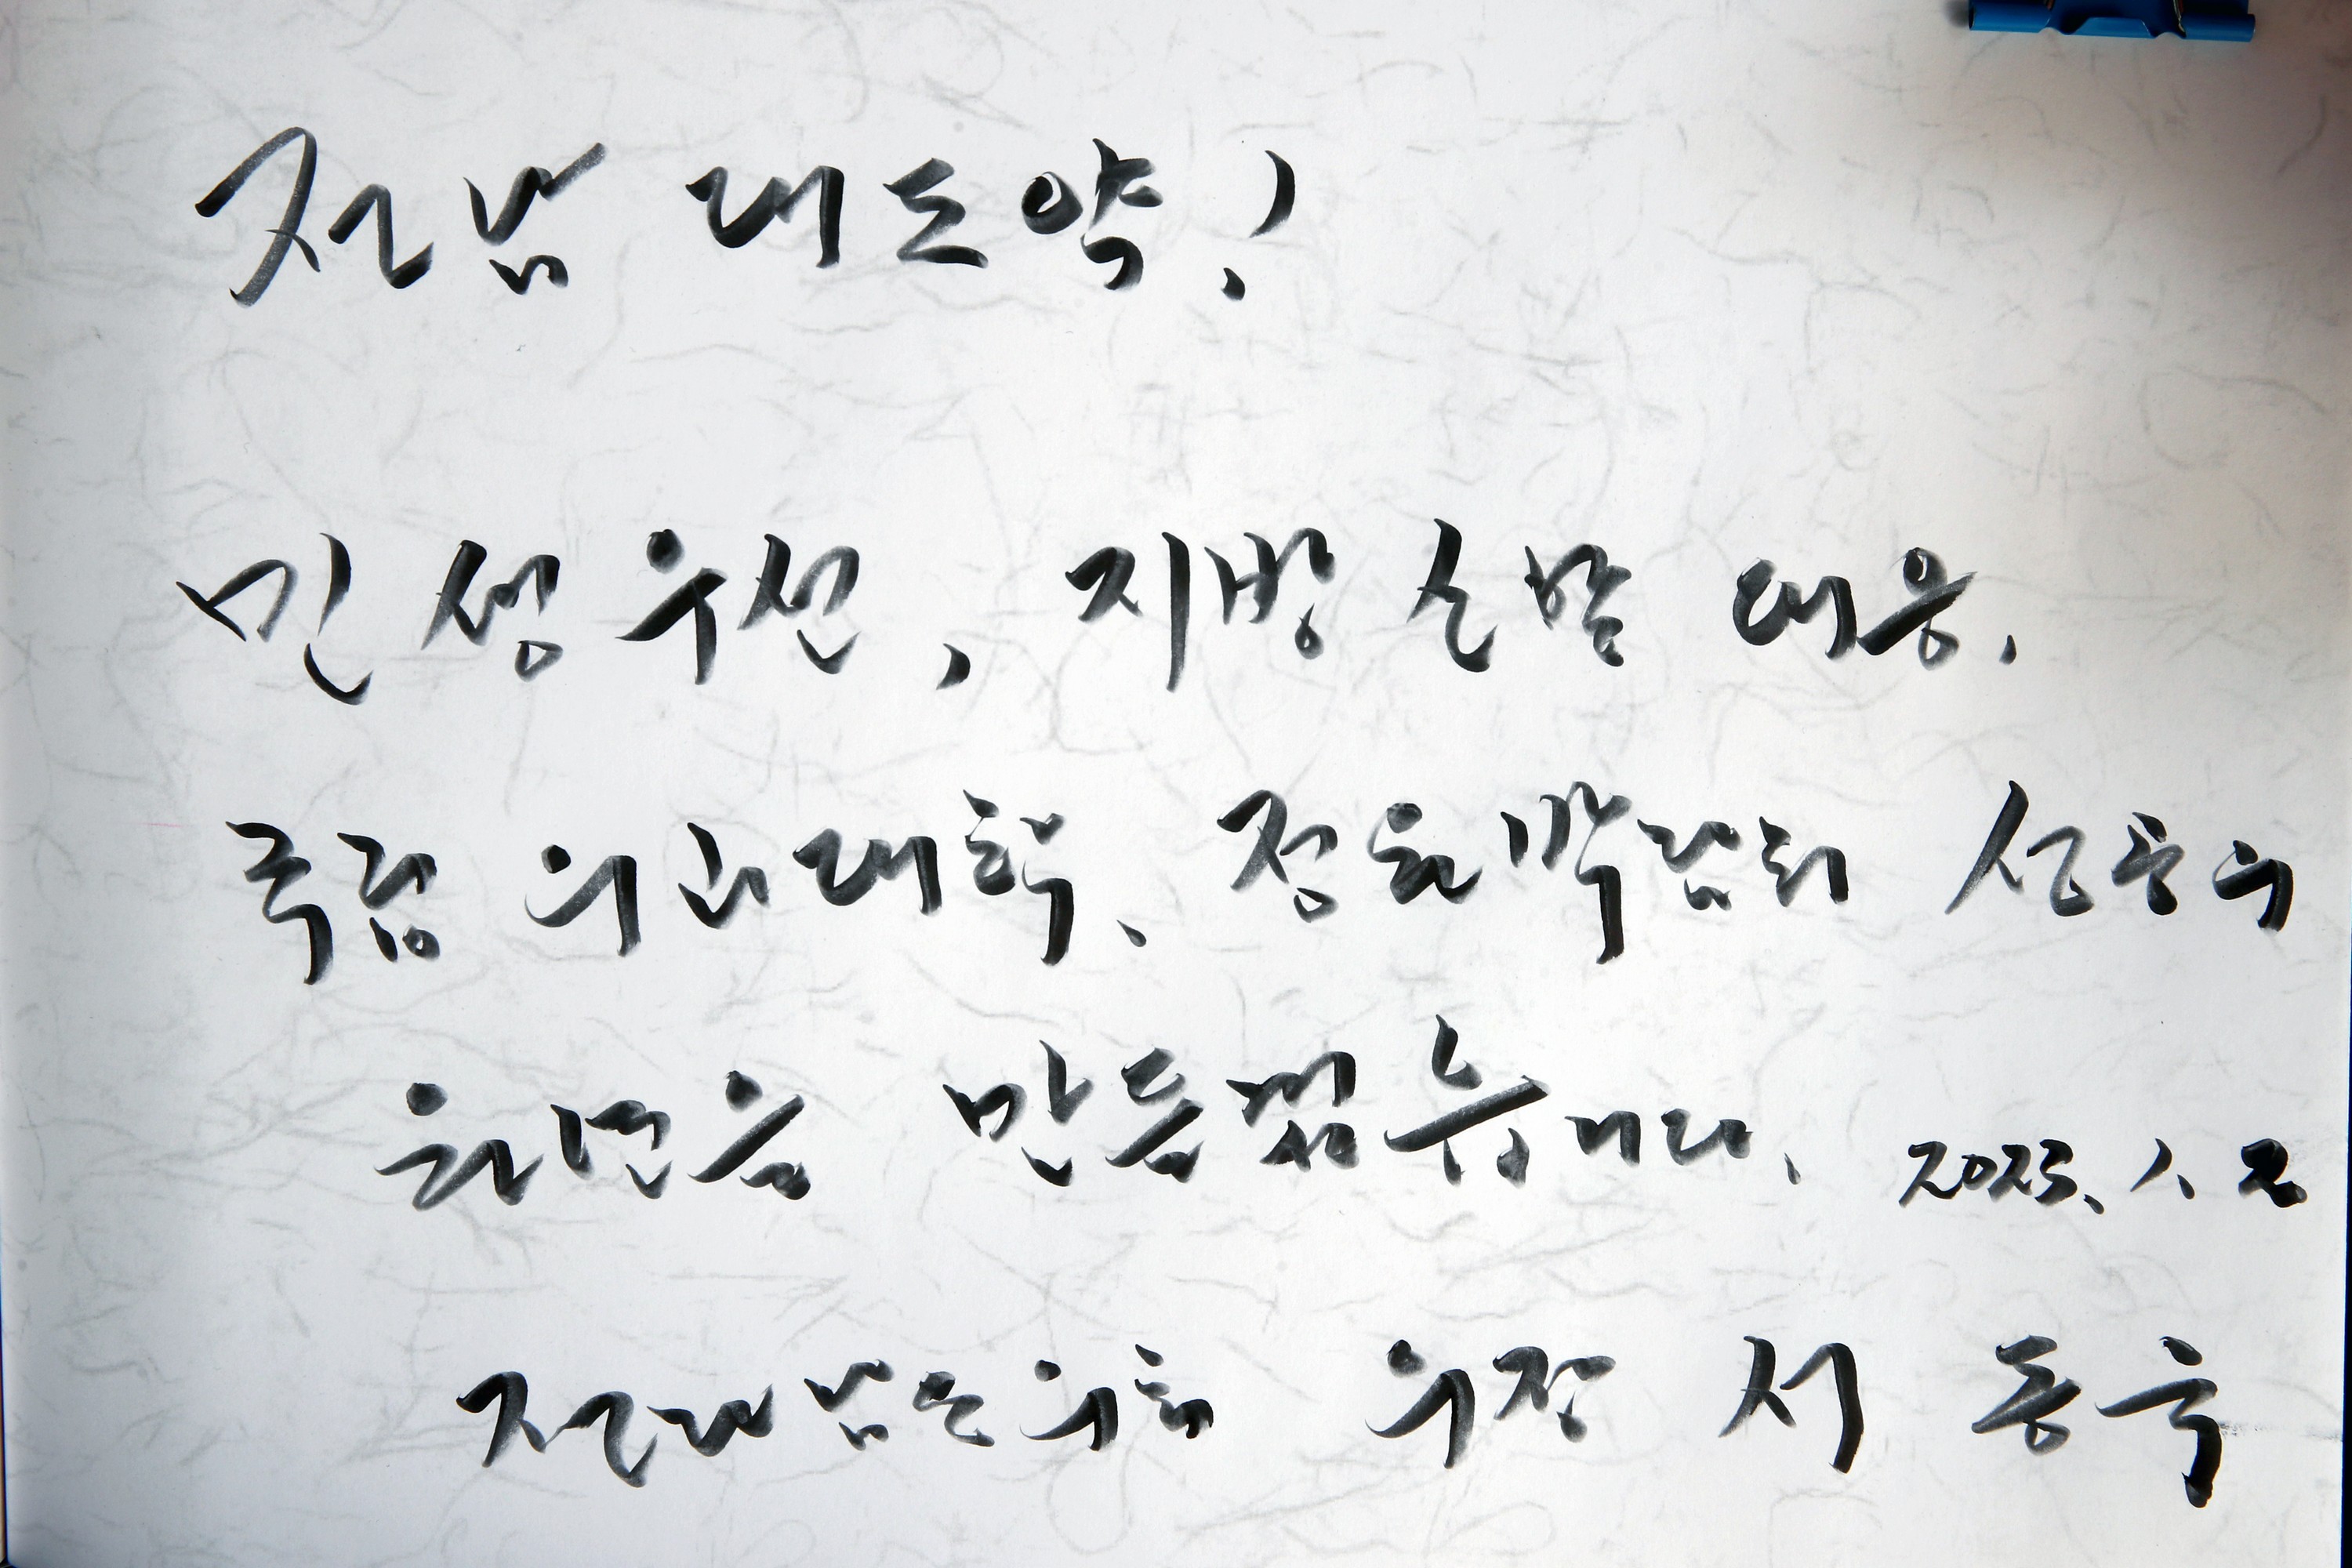 전남 대도약!
민생우선, 지방소멸 대응.
국립 의과대학, 정원박람회 성공의
원년을 만들겠습니다. 2023. 1. 2
전라남도의회 의장 서동욱